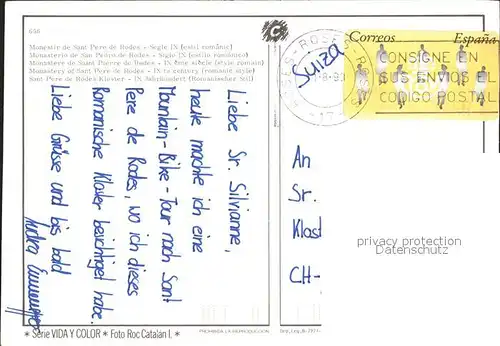 656
Monestir de Sant Pere de Rodes - Sigle IX (estil romànic)
Monasterio de San Pedro de Rodes - Siglo IX (estilo románico)
Monastère de Saint Pierre de Rodes - IX ème siècle (style roman)
Monastery of Sant Pere de Rodes - IX th century (romanic style)
Sant Pere de Rodes Kloster - IX Jahrhundert (Romanischer Stil)
Correos España
CONSIGNE EN
SUS ENVIOS EL
CODIGO POSTAL
ROSES
Suiza
Liebe Sr. Silvianne,
heute machte ich eine
Mountain-Bike-Tour nach Sant
Pere de Rodes, wo ich dieses
Romanische Kloster besichtiget habe.
Liebe Grüsse und bis bald
An
Sr.
Klost
CH-
privacy protection
Datenschutz
* Série VIDA Y COLOR * Foto Roc Catalán I. *
PROHIBIDA LA REPRODUCCIÓN